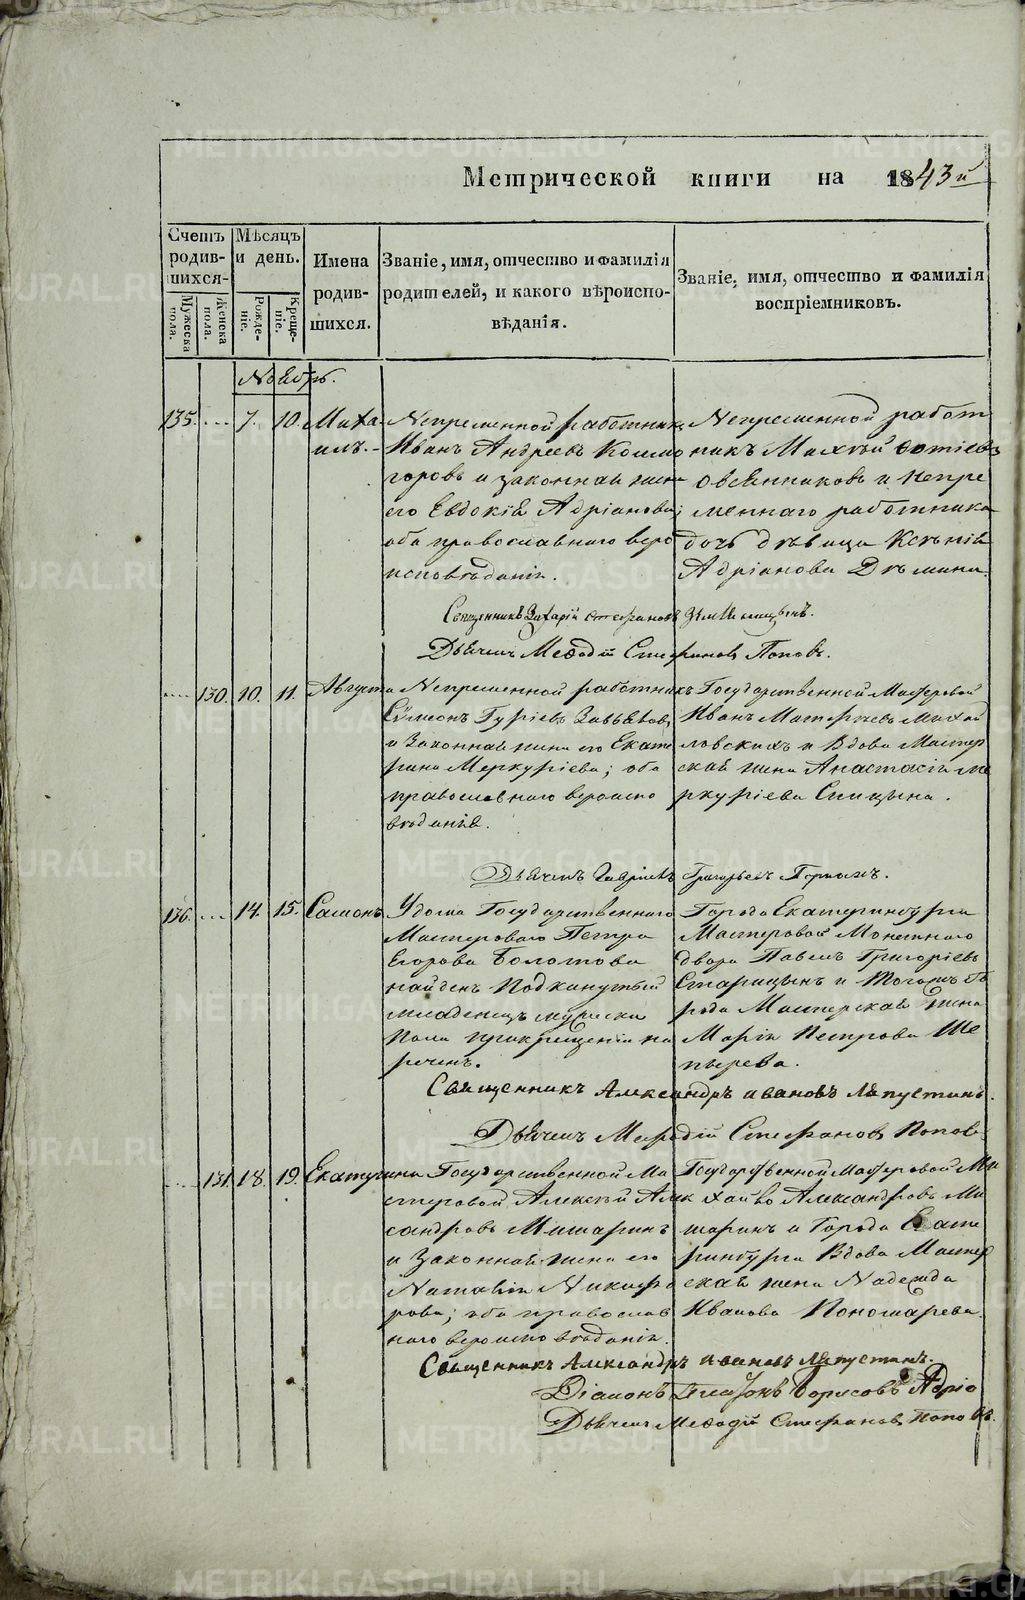 Метрической книги на 1843й
Счетъ родив-шихся.
Мужеска пола.
Женска пола.
Мѣсяцъ и день.
Рожде-ніе.
Креще-ніе.
Имена родив-шихся.
Званіе, имя, отчество и фамилія родителей, и какого вѣроиспо-вѣданія.
Званіе, имя, отчество и фамилія воспріемниковъ.
Ноябрь.
135. ... 7. 10. Миха-
илъ.
Непременной работникъ
Иванъ Андреевъ Коимо
горовъ и законная жена
его Евдокія Адріанова;
оба православнаго веро
исповѣданія.
Непременной работ
никъ Матвѣй Фотіевъ
Овсянниковъ и Непре
меннаго работника
дочь дѣвица Ксенія
Адріанова Демина.
Священникъ Захарій Стефановъ
Дьячекъ Мефодій Стефановъ Поповъ.
.... 130. 10. 11. Августа
Непременной работникъ
Сѵмеонъ Гуріевъ Завьяловъ
и Законная жена его Екате
рина Меркуріева; оба
православнаго вероиспо
вѣданія.
Государственной Мастеровой
Иванъ Матвѣевъ Михай
ловскихъ и Вдова Мастер
ская жена Анастасія Ме
ркуріева Спицына.
Дьячекъ Гавріилъ Григорьевъ
136. ... 14. 15. Самонъ
У дома Государственнаго
Мастероваго Петра
Егорова Болотова
найденъ Подкинутый
младенецъ мужеска
пола при крещеніи на
реченъ.
Города Екатеринбурга
Мастеровой Монетнаго
двора Павелъ Григоріевъ
Старицынъ и Тогожъ Го
рода Мастерская жена
Марія Петрова Ше
пырева.
Священникъ Александръ Ивановъ Ляпустинъ.
Дьячекъ Мефодій Стефановъ Поповъ
.... 131. 18. 19. Екатерина
Государственной Ма
стеровой Алексѣй Алек
сандровъ Мишаринъ
и Законная жена его
Наталія Никифо
рова; оба православ
наго вероисповѣданія.
Государственной Мастеровой Ми
хайло Александровъ Ми
шаринъ и Города Екате
ринбурга Вдова Мастер
ская жена Надежда
Иванова Пономарева.
Священникъ Александръ Ивановъ Ляпустинъ.
Діаконъ Платонъ Борисовъ Адріо
Дьячекъ Мефодій Стефановъ Поповъ.
METRIKI.GASO-URAL.RU